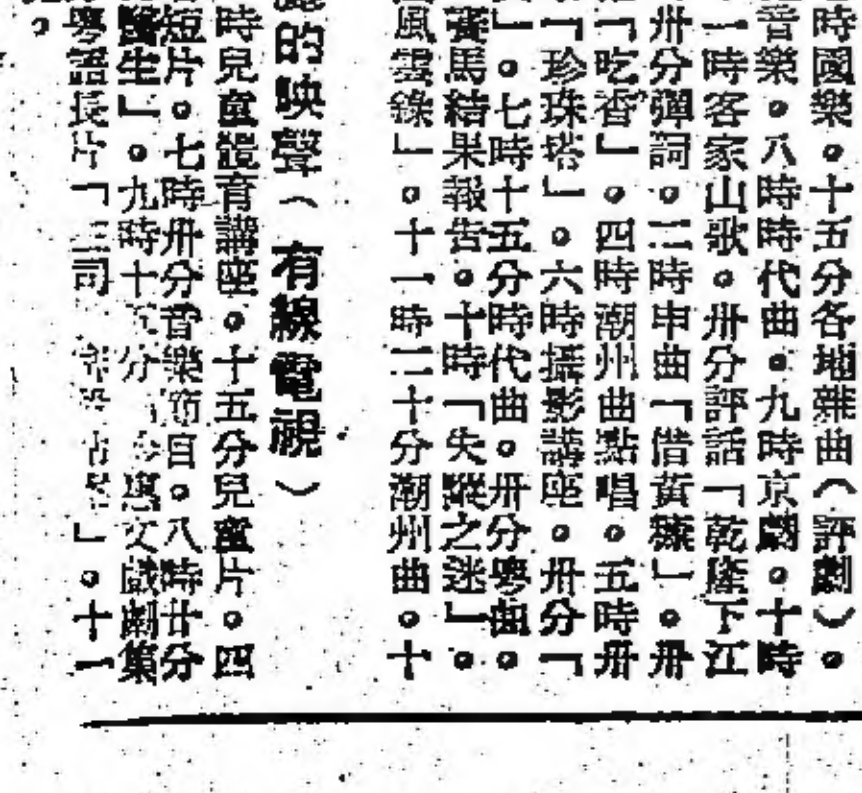 時國樂。十五分各地雜曲(評劇)。
音樂。八時時代曲。九時京劇。十時
一時客家山歌。卅分評話「乾隆下江
卅分彈詞。二時申曲「借黃糠」。卅
「吃香」。四時潮州曲點唱。五時卅
「珍珠塔」。六時攝影講座。卅分「
」。七時十五分時代曲。卅分粵曲。
賽馬結果報告。十時「失蹤之迷」。
風雲錄」。十一時二十分潮州曲。十
的映聲(有線電視)
時兒童體育講座。十五分兒童片。四
短片。七時卅分音樂節目。八時廿分
醫生」。九時十五分 惠文戲劇集
粵語長片「三司 」。十一
。